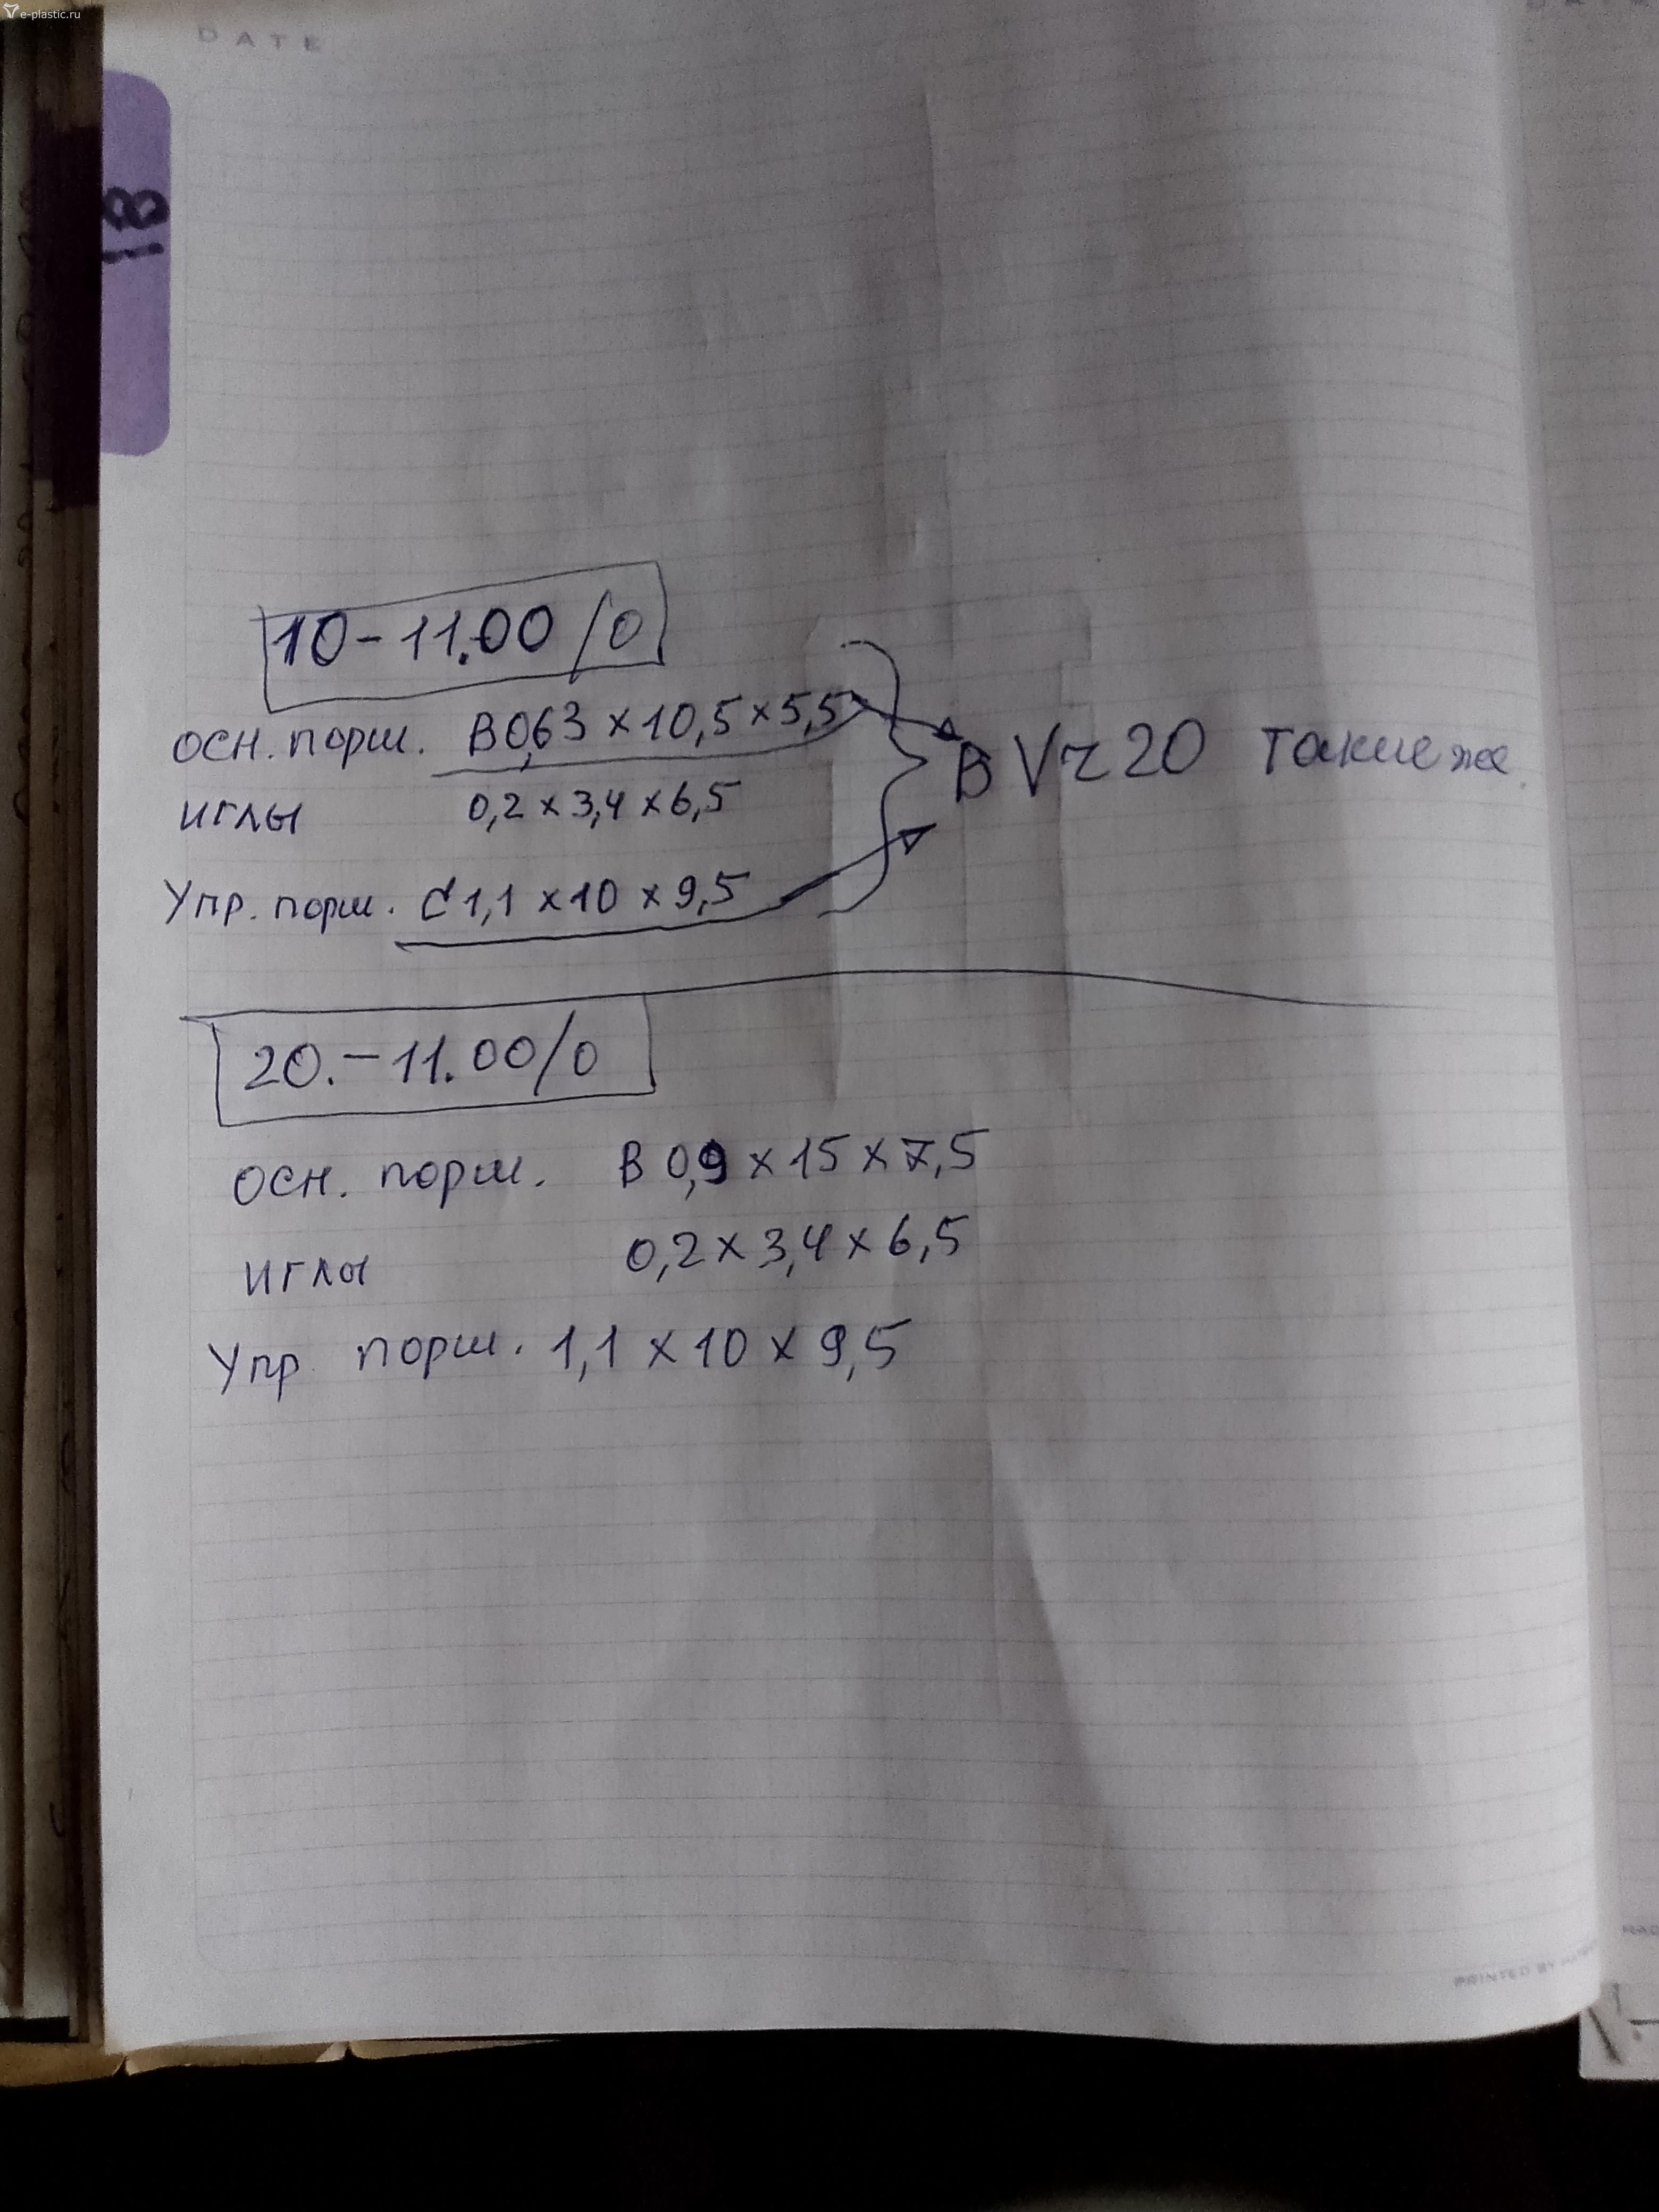 e-plastic.ru
DATE
18
10-11.00/0
осн. порш. В0,63×10,5×5,5
иглы 0,2×3,4×6,5
Упр. порш. С1,1×10×9,5
В Vч20 такие же
20.-11.00/0
осн. порш. В 0,9×15×7,5
иглы 0,2×3,4×6,5
Упр порш. 1,1×10×9,5
PRINTED BY